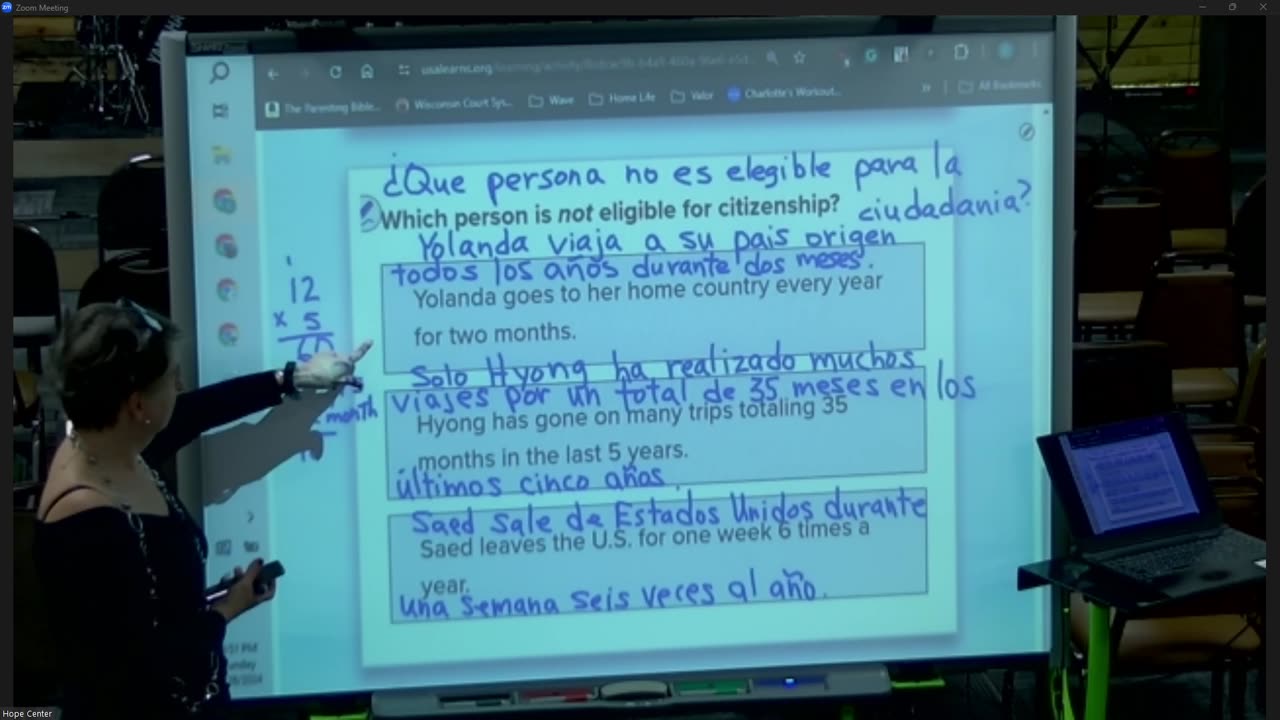 Zoom Meeting
usalearns.org
The Parenting Bible...
Wisconsin Court Sys...
Wave
Home Life
Valor
Charlotte's Workout...
All Bookmarks
¿Que persona no es elegible para la
ciudadania?
Which person is not eligible for citizenship?
Yolanda viaja a su pais origen
todos los años durante dos meses.
Yolanda goes to her home country every year
for two months.
Solo Hyong ha realizado muchos
viajes por un total de 35 meses en los
Hyong has gone on many trips totaling 35
months in the last 5 years.
últimos cinco años.
Saed sale de Estados Unidos durante
Saed leaves the U.S. for one week 6 times a
year.
una semana seis veces al año.
1
12
x 5
60
month
Hope Center